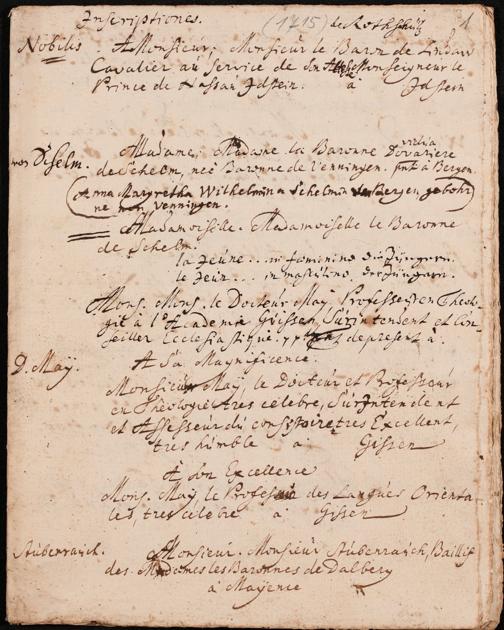 Inscriptiones. (1715) de Rothschütz 1
Nobilis. A Monsieur, Monsieur le Baron de Lindau
Cavalier au Service de Son Altesse Monseigneur le
Prince de Nassau Idstein. a Idstein
Madame, Madame la Baronne Douariere
de Schelm, neé Baronne de Venningen. à Bergen.
Anna Margretha Wilhelmina Schelmin von Bergen gebohr
ne von Venningen.
Mademoiselle. Mademoiselle le Baronne
de Schelm.
la Jeune .. in feminino die Jüngere.
le Jeun ... in masculino der Jüngere.
Mons. Mons. le Docteur Maÿ Professeur en Theolo-
gie à l'Academie Giissen, Surintendent et Con-
seiller Ecclesiastique. depresent a.
D. Maÿ. A Sa Magnificence.
Monsieur Maÿ, le Docteur et Professeur
en Theologie tres celebre, Surintendent
et Assesseur du consistoire tres Excellent,
tres humble a Gissen
A Son Excellence
Mons. Maÿ, le Professeur des Langues Orienta
les, tres celebre a Gissen
Stubenrauch. A Monsieur. Monsieur Stubenrauch, Baillif
des Madames les Baronnes de Dalberg
à Maÿence